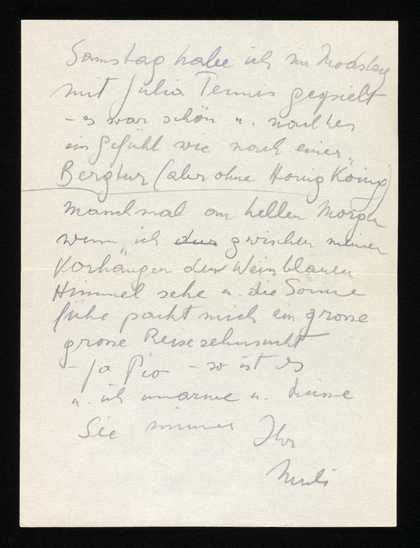 Samstag habe ich in
mit Julia Tennis gespielt
- es war schön u. nachher
ein Gefühl wie nach einer
Bergtur (aber ohne Honig König)
Manchmal am hellen Morgen
wenn ich zwischen meinen
Vorhängen den blauen
Himmel sehe u. die Sonne
fühle packt mich ein grosse
grosse Reisesehnsucht
- ja Pio - so ist es
u. ich umarme u. küsse
Sie immer Ihr